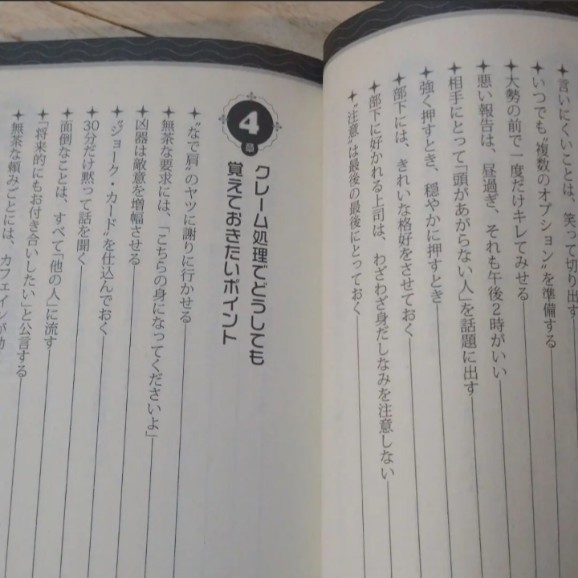 言いにくいことは、笑って切り出す
いつでも〝複数のオプション〟を準備する
大勢の前で一度だけキレてみせる
悪い報告は、昼過ぎ、それも午後2時がいい
相手にとって「頭があがらない人」を話題に出す
強く押すとき、穏やかに押すとき
部下には、きれいな格好をさせておく
部下に好かれる上司は、わざわざ身だしなみを注意しない
〝注意〟は最後の最後にとっておく
4章
クレーム処理でどうしても
覚えておきたいポイント
〝なで肩〟のヤツに謝りに行かせる
無茶な要求には、「こちらの身になってくださいよ」
凶器は敵意を増幅させる
〝ジョーク・カード〟を仕込んでおく
30分だけ黙って話を聞く
面倒なことは、すべて「他の人」に流す
「将来的にもお付き合いしたい」と公言する
無茶な頼みごとには、カフェインが効